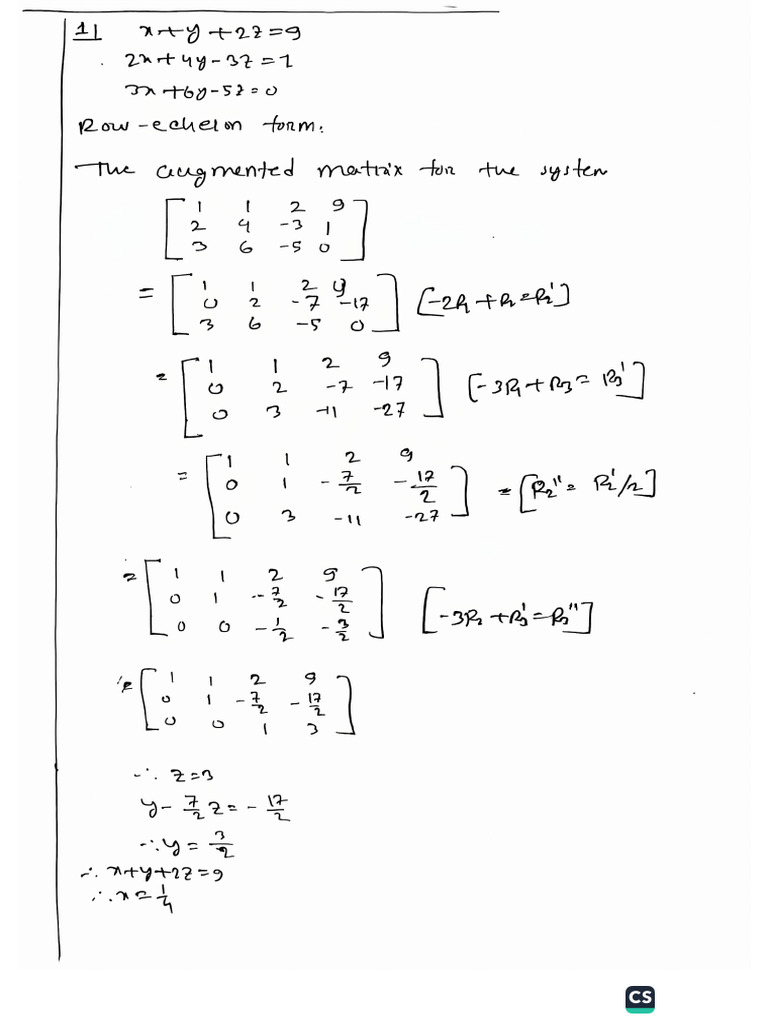 1| x+y+2z=9
2x+4y-3z=1
3x+6y-5z=0
Row-echelon form:
The augmented matrix for the system
[1 1 2 9
2 4 -3 1
3 6 -5 0]
= [1 1 2 9
0 2 -7 -17
3 6 -5 0] [-2R₁+R₂=R₂']
= [1 1 2 9
0 2 -7 -17
0 3 -11 -27] [-3R₁+R₃=R₃']
= [1 1 2 9
0 1 -7/2 -17/2
0 3 -11 -27] = [R₂''=R₂'/2]
= [1 1 2 9
0 1 -7/2 -17/2
0 0 -1/2 -3/2] [-3R₂+R₃'=R₃'']
= [1 1 2 9
0 1 -7/2 -17/2
0 0 1 3]
∴ z=3
y-7/2 z=-17/2
∴ y=3/2
∴ x+y+2z=9
∴ x=1/4
CS